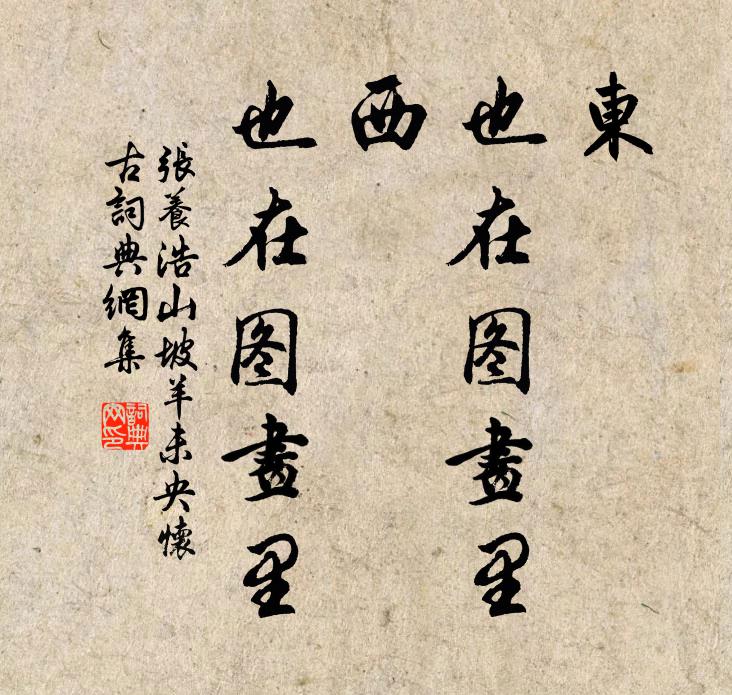 東
也在图畫里
西
也在图畫里
張養浩山坡羊未央懷
古詞典網集
詞典网印